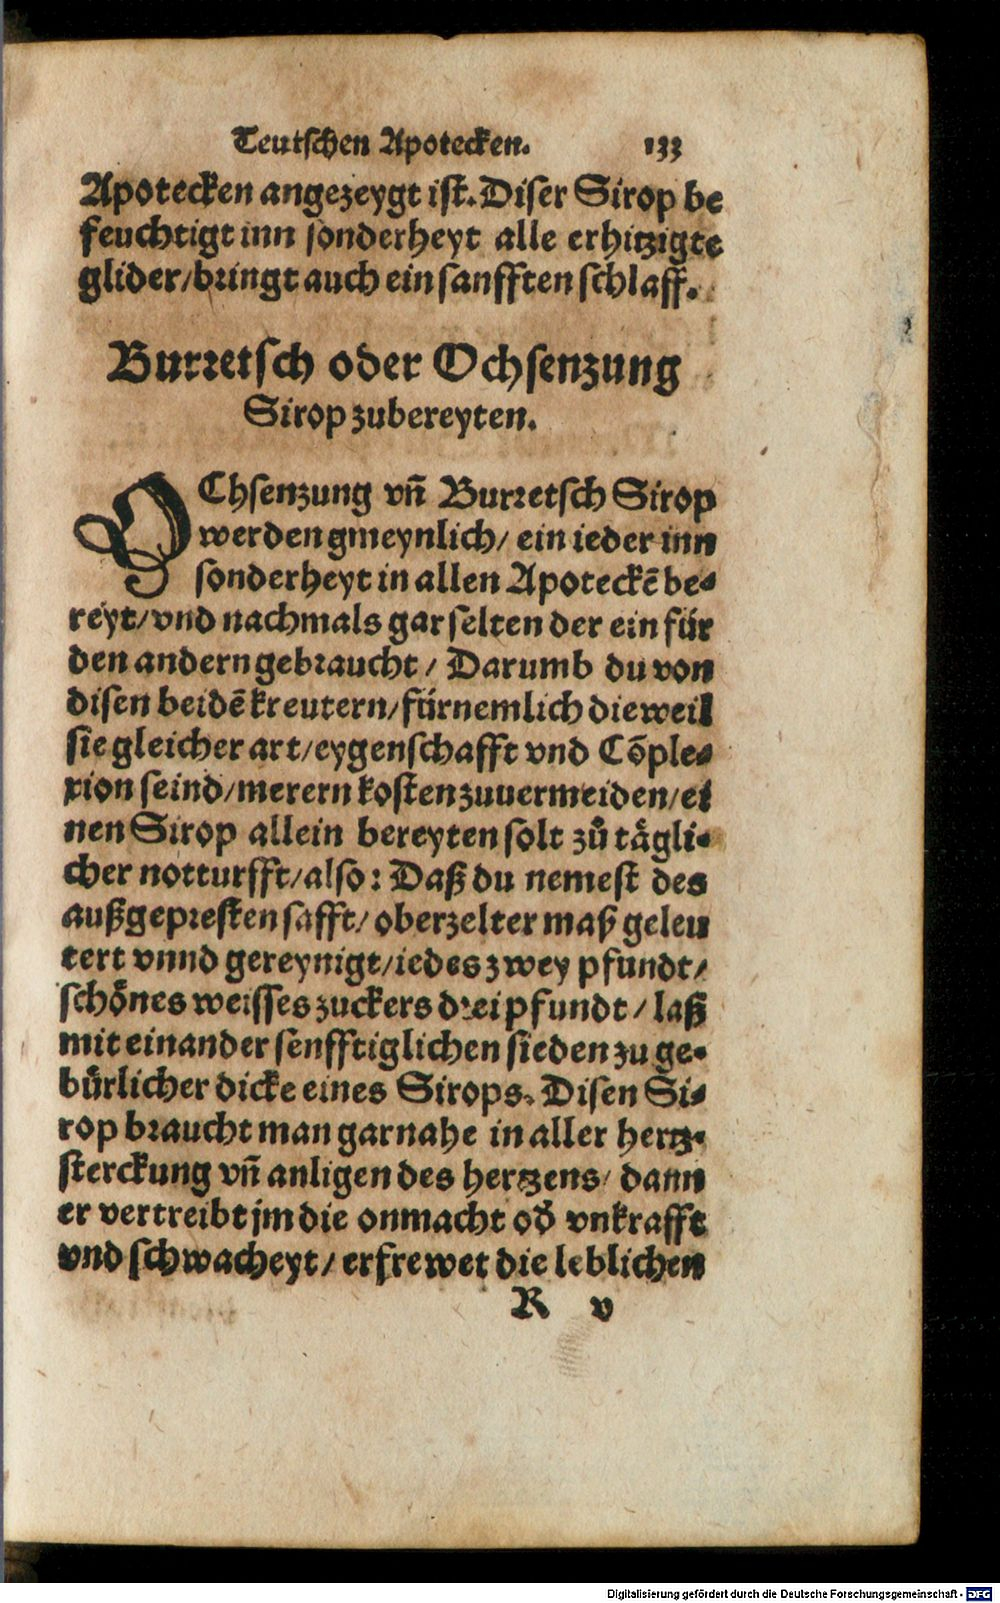 Teutschen Apotecken. 133
Apotecken angezeygt ist. Diser Sirop be
feuchtigt inn sonderheyt alle erhitzigte
glider/bringt auch ein sanfften schlaff.
Burretsch oder Ochsenzung
Sirop zubereyten.
OChsenzung vñ Burretsch Sirop
werden gmeynlich/ ein ieder inn
sonderheyt in allen Apoteckē be-
reyt/vnd nachmals gar selten der ein für
den andern gebraucht/ Darumb du von
disen beidē kreutern/fürnemlich dieweil
sie gleicher art/eygenschafft vnd Cõple-
xion seind/merern kosten zuuermeiden/ei
nen Sirop allein bereyten solt zů tägli-
cher notturfft/also: Daß du nemest des
außgepresten safft/ oberzelter maß geleu
tert vnnd gereynigt/iedes zwey pfundt/
schönes weisses zuckers drei pfundt/ laß
mit einander senfftiglichen sieden zu ge-
bürlicher dicke eines Sirops. Disen Si-
rop braucht man gar nahe in aller hertz-
sterckung vñ anligen des hertzens/ dann
er vertreibt jm die onmacht od̕ vnkrafft
vnd schwacheyt/ erfrewet die leblichen
R v
Digitalisierung gefördert durch die Deutsche Forschungsgemeinschaft - DFG